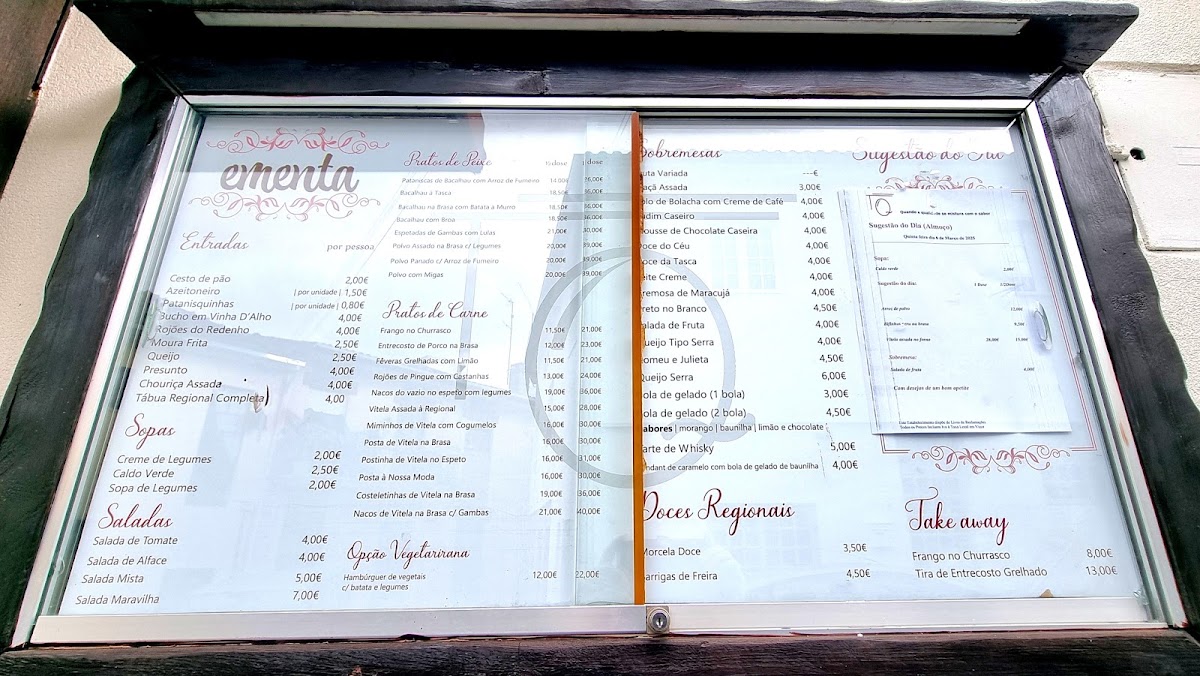 ementa
Entradas por pessoa
Cesto de pão 2,00€
Azeitoneiro | por unidade | 1,50€
Patanisquinhas | por unidade | 0,80€
Bucho em Vinha D'Alho 4,00€
Rojões do Redenho 4,00€
Moura Frita 2,50€
Queijo 2,50€
Presunto 4,00€
Chouriça Assada 4,00€
Tábua Regional Completa 4,00
Sopas
Creme de Legumes 2,00€
Caldo Verde 2,50€
Sopa de Legumes 2,00€
Saladas
Salada de Tomate 4,00€
Salada de Alface 4,00€
Salada Mista 5,00€
Salada Maravilha 7,00€
Pratos de Peixe ½dose dose
Pataniscas de Bacalhau com Arroz de Fumeiro 14,00€ 26,00€
Bacalhau à Tasca 18,50€ 36,00€
Bacalhau na Brasa com Batata a Murro 18,50€ 36,00€
Bacalhau com Broa 18,50€ 36,00€
Espetadas de Gambas com Lulas 21,00€ 30,00€
Polvo Assado na Brasa c/ Legumes 20,00€ 39,00€
Polvo Panado c/ Arroz de Fumeiro 20,00€ 39,00€
Polvo com Migas 20,00€ 39,00€
Pratos de Carne
Frango no Churrasco 11,50€ 21,00€
Entrecosto de Porco na Brasa 12,00€ 23,00€
Fêveras Grelhadas com Limão 11,50€ 21,00€
Rojões de Pingue com Castanhas 13,00€ 24,00€
Nacos do vazio no espeto com legumes 19,00€ 36,00€
Vitela Assada à Regional 15,00€ 28,00€
Miminhos de Vitela com Cogumelos 16,00€ 30,00€
Posta de Vitela na Brasa 16,00€ 30,00€
Postinha de Vitela no Espeto 16,00€ 31,00€
Posta à Nossa Moda 16,00€ 30,00€
Costeletinhas de Vitela na Brasa 19,00€ 36,00€
Nacos de Vitela na Brasa c/ Gambas 21,00€ 40,00€
Opção Vegetarirana
Hambúrguer de vegetais 12,00€ 22,00€
c/ batata e legumes
Sobremesas
uta Variada ---€
açã Assada 3,00€
olo de Bolacha com Creme de Café 4,00€
udim Caseiro 4,00€
ousse de Chocolate Caseira 4,00€
oce do Céu 4,00€
oce da Tasca 4,00€
eite Creme 4,00€
remosa de Maracujá 4,00€
reto no Branco 4,50€
alada de Fruta 4,00€
ueijo Tipo Serra 4,00€
omeu e Julieta 4,50€
ueijo Serra 6,00€
ola de gelado (1 bola) 3,00€
ola de gelado (2 bola) 4,50€
abores | morango | baunilha | limão e chocolate
arte de Whisky 5,00€
ndant de caramelo com bola de gelado de baunilha 4,00€
Doces Regionais
Morcela Doce 3,50€
arrigas de Freira 4,50€
Sugestão do Dia
Sugestão do Dia (Almoço)
Quinta feira dia 6 de Março de 2025
Sopa:
Caldo verde 2,00€
Sugestão do dia: 1 Dose 1/2Dose
Arroz de polvo 12,00€
Vitela assada no forno 28,00€ 15,00€
Sobremesa:
Salada de fruta 4,00€
Com desejos de um bom apetite
Take away
Frango no Churrasco 8,00€
Tira de Entrecosto Grelhado 13,00€